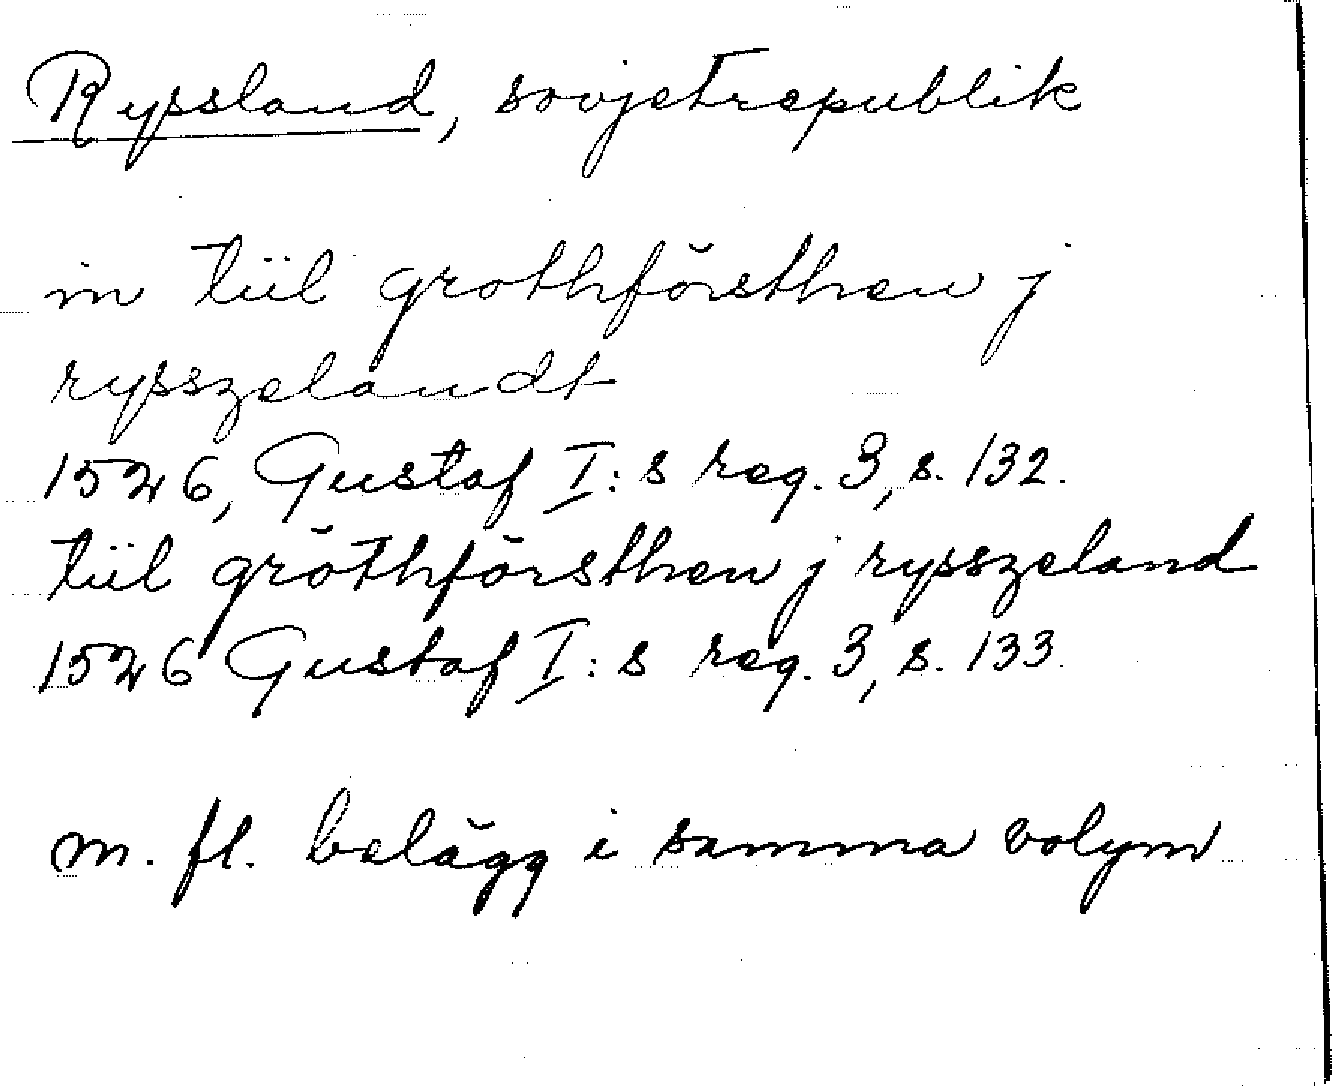 Ryssland, sovjetrepublik
in tiil grothförsthen j
rysszelandt
1526, Gustaf I:s reg. 3, s. 132.
tiil gröthförsthen j rysszeland
1526 Gustaf I:s reg. 3, s. 133.
m. fl. belägg i samma volym